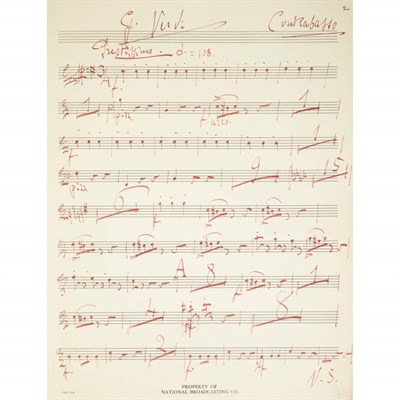 G. Verdi Contrabasso
Prestissimo. = 108.
1 pizz arco. 1
1
pizz 9 15
6
1
A 8 1
4 8
2
V. S.
PROPERTY OF
NATIONAL BROADCASTING CO.